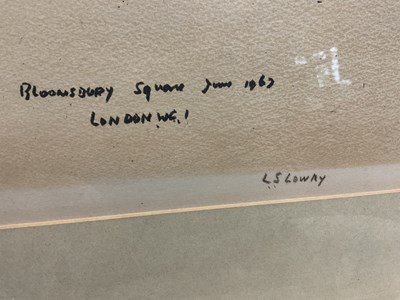 BLOOMSBURY Square June 1967
LONDON WC.1
L.S LOWRY